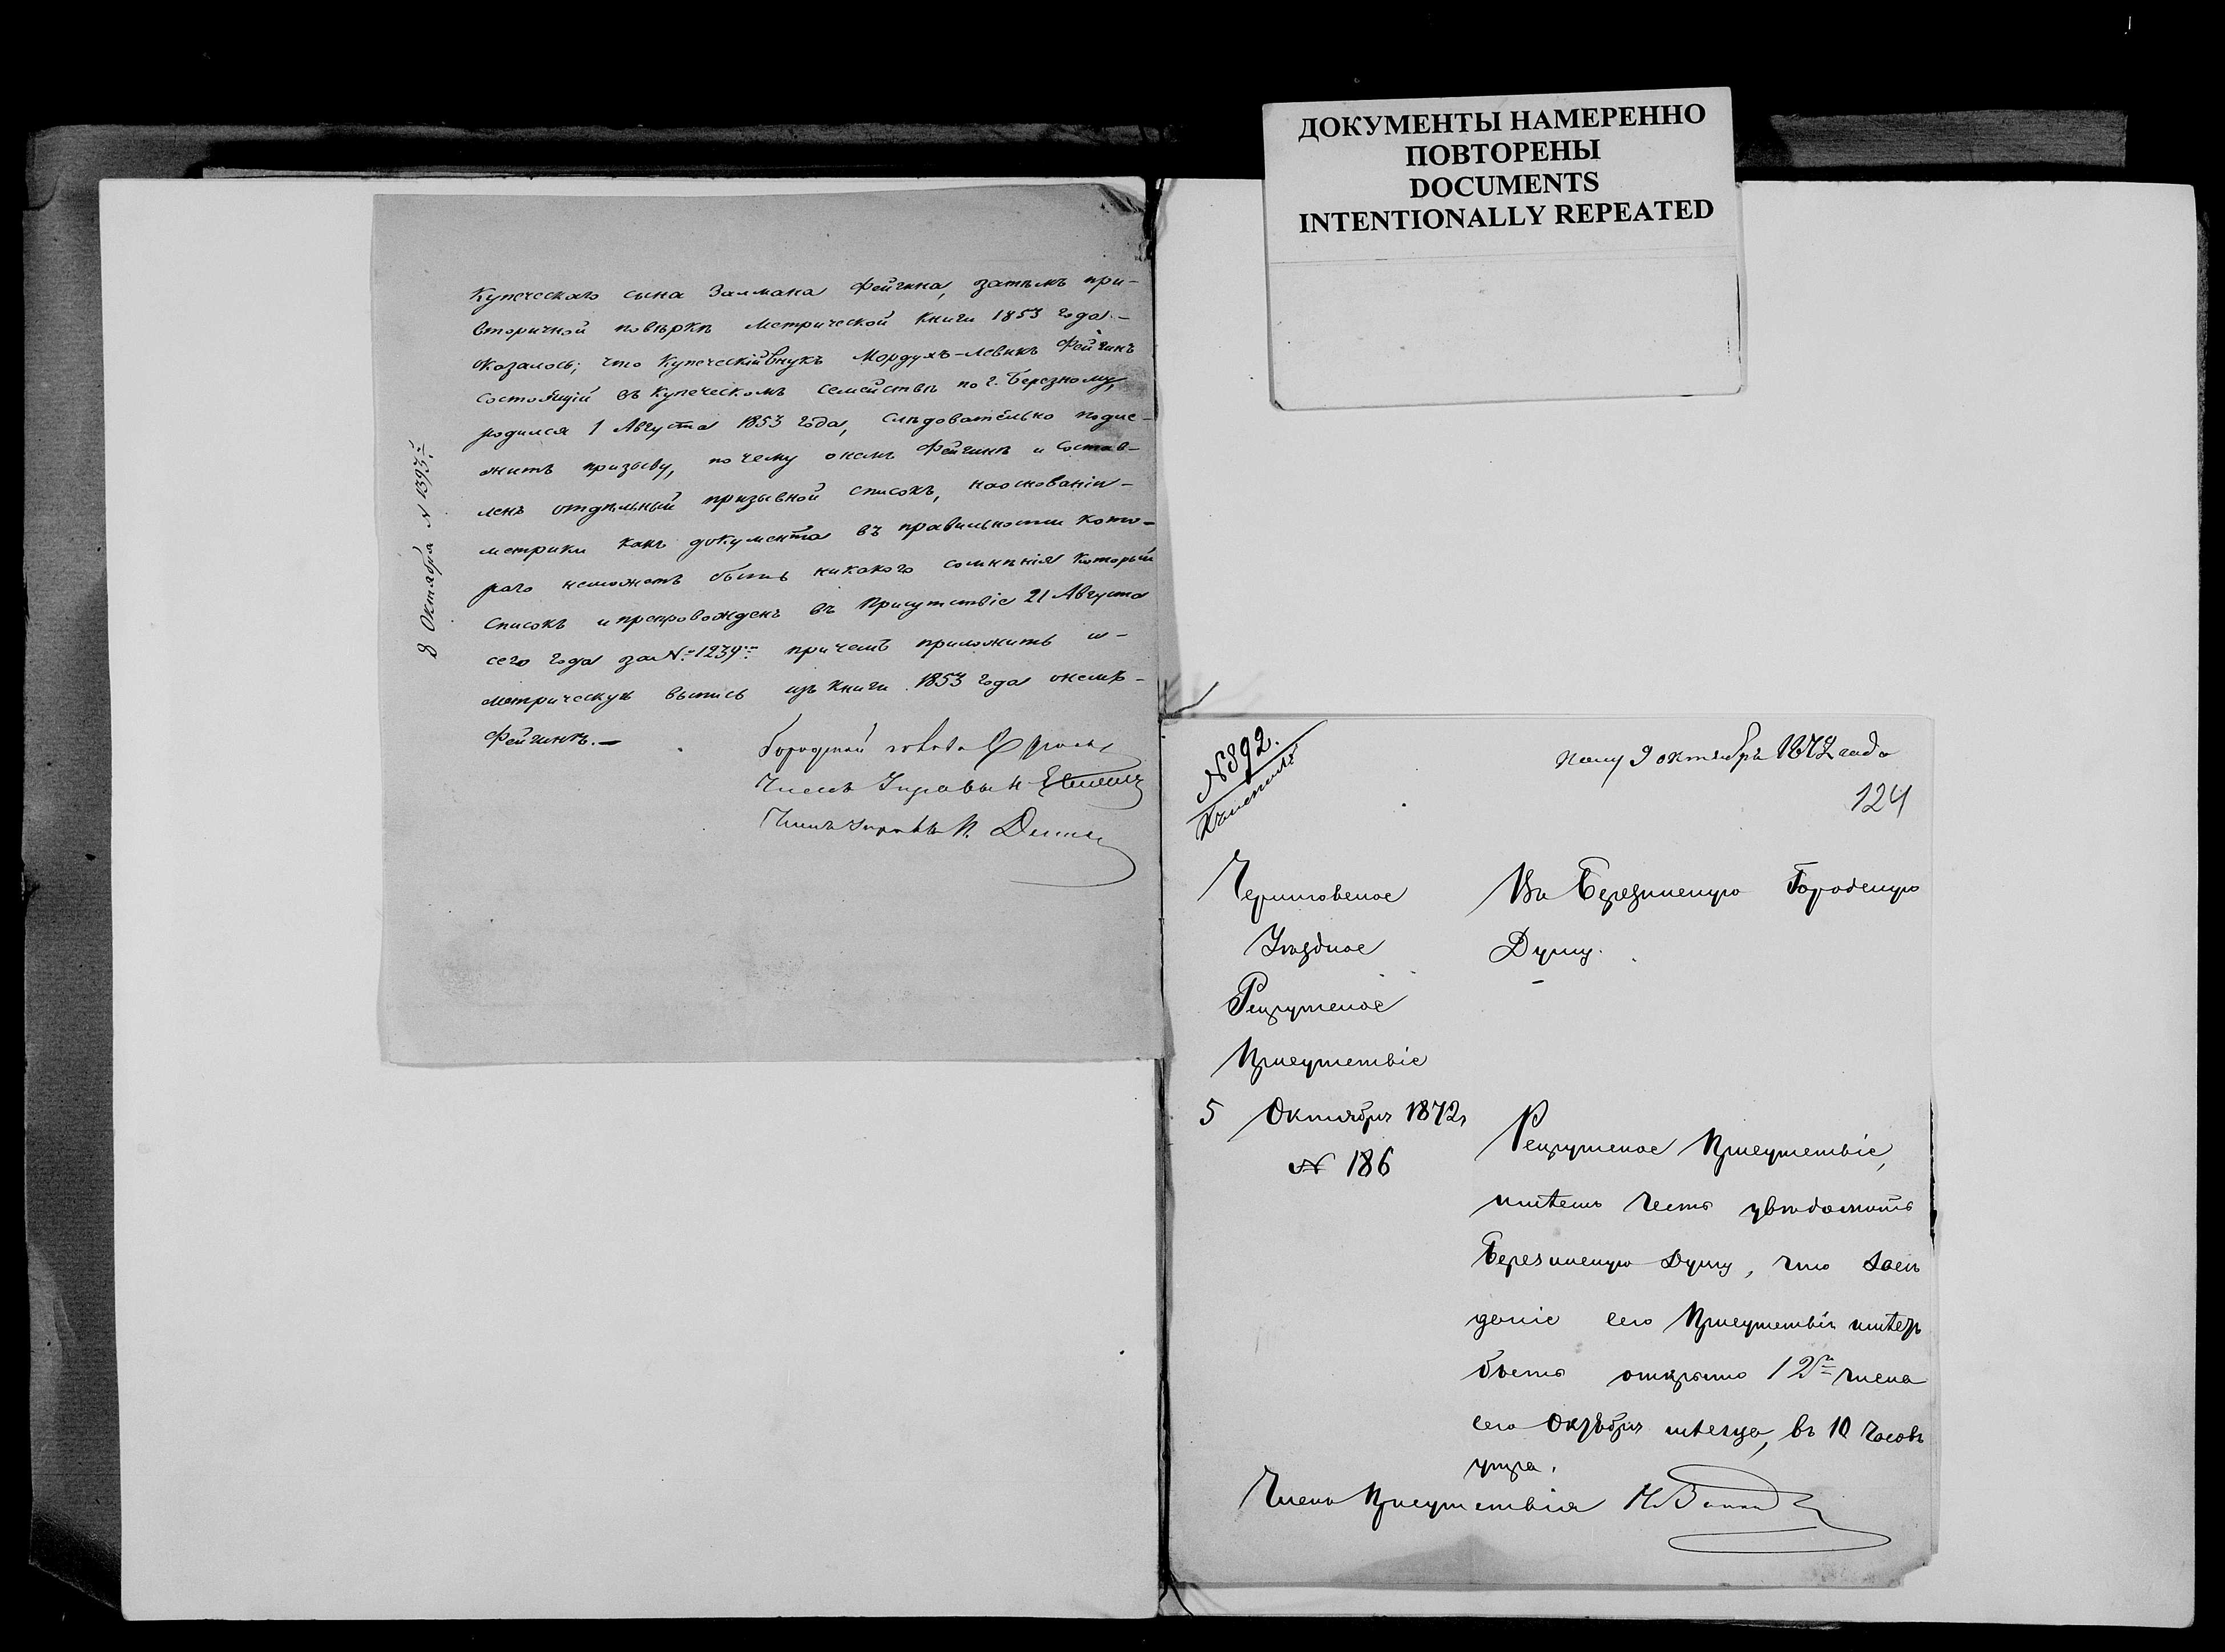 ДОКУМЕНТЫ НАМЕРЕННО
ПОВТОРЕНЫ
DOCUMENTS
INTENTIONALLY REPEATED
Купеческаго сына Залмана Фейгина, затѣмъ при-
вторичной повѣркѣ метрической книги 1853 года-
оказалось; что Купеческій внукъ Мордухъ-Левикъ Фейгинъ
состоящій въ купеческомъ семействѣ по г. Березному,
родился 1 Августа 1853 года, слѣдовательно подле-
житъ призыву, почему о немъ Фейгинѣ и состав-
ленъ отдѣльный призывной списокъ, на основаніи-
метрики какъ документа въ правильности кото-
раго неможетъ быть никакого сомнѣнія который
списокъ и препровожденъ въ Присутствіе 21 Августа
сего года за № 1239 причемъ приложить и-
метрическую выпись изъ книги 1853 года о немъ-
Фейгинѣ.-
Городской голова
Членъ Управы Н
Членъ Управы И.
8 Октября N 1393
N 892.
Пол. 9 октября 1872 года
124
Черниговское
Уѣздное
Рекрутское
Присутствіе
5 Октября 1872 г
N 186
Въ Березинскую Городскую
Думу.
Рекрутское Присутствіе,
имѣетъ честь увѣдомить
Березинскую Думу, что засѣ
даніе сего Присутствія имѣетъ
быть открыто 12 числа
сего Октября мѣсяца, въ 10 часовъ
утра.
Членъ Присутствія